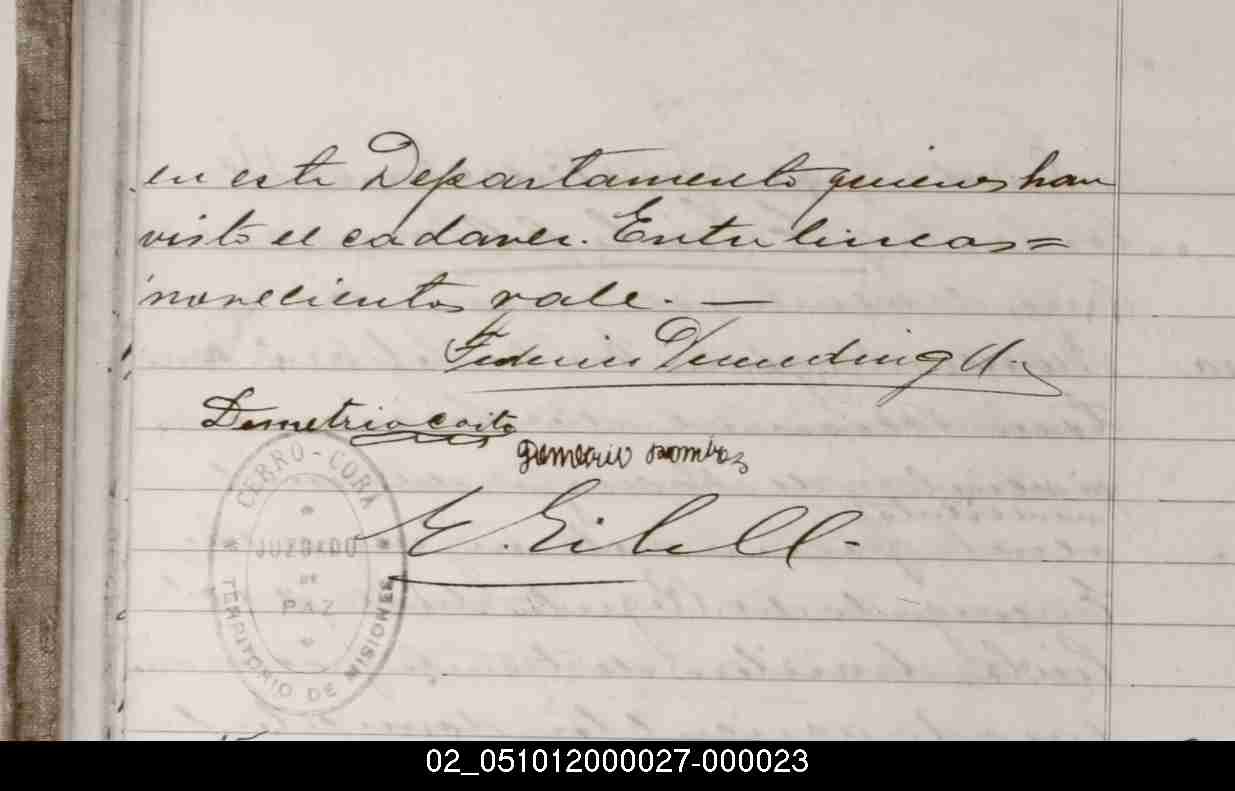 en este Departamento quienes han
visto el cadaver. Entre lineas=
novecientos vale. —
Federico
Demetrio Coito
E.
CERRO-CORA
JUZGADO
DE
PAZ
TERRITORIO DE MISIONES
02_051012000027-000023